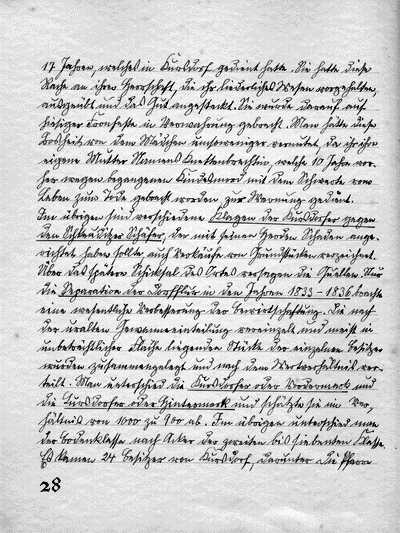 17 Jahren, welches in Kursdorf gedient hatte. Sie hatte diese
Rache an ihrer Herrschaft, die ihr liederliches Wesen vorgehalten,
ausgeübt und das Gut angesteckt. Sie wurde darauf auf
hiesiger Fronfeste in Verwahrung gebracht. Man hätte diese
Bosheit von dem Mädchen umsoweniger vermutet, da ihr ihre
eigene Mutter Namens Knettenbrechtin, welche 10 Jahre vor-
her wegen begangenen Kindesmord mit dem Schwerte vom
Leben zum Tode gebracht worden, zur Warnung gedient.
Im übrigen sind verschiedene Klagen der Kursdorfer gegen
den Schkeuditzer Schäfer, der mit seinen Herden Schaden ange-
richtet haben sollte, auch Verkäufe von Grundstücken verzeichnet.
Über das spätere Schicksal des Ortes versagen die Quellen. Nur
die Separation der Dorfflur in den Jahren 1833 - 1836 brachte
eine wesentliche Verbesserung der Bewirtschaftung. Die nach
der uralten Gewanneinteilung vereinzelt und meist in
unbeträchtlicher Fläche liegenden Stücke der einzelnen Besitzer
wurden zusammengelegt und nach dem Wertverhältnis ver-
teilt. Man unterschied die Kursdorfer oder Vordermark und
die Kursdorfer oder Hintermark und schätzte sie im Ver-
hältnis von 1000 zu 900 ab. Im übrigen unterschied man
der Bodenklasse nach Acker der zweiten bis siebenten Klasse.
Es kamen 24 Besitzer von Kursdorf, darunter die Pfarre
28